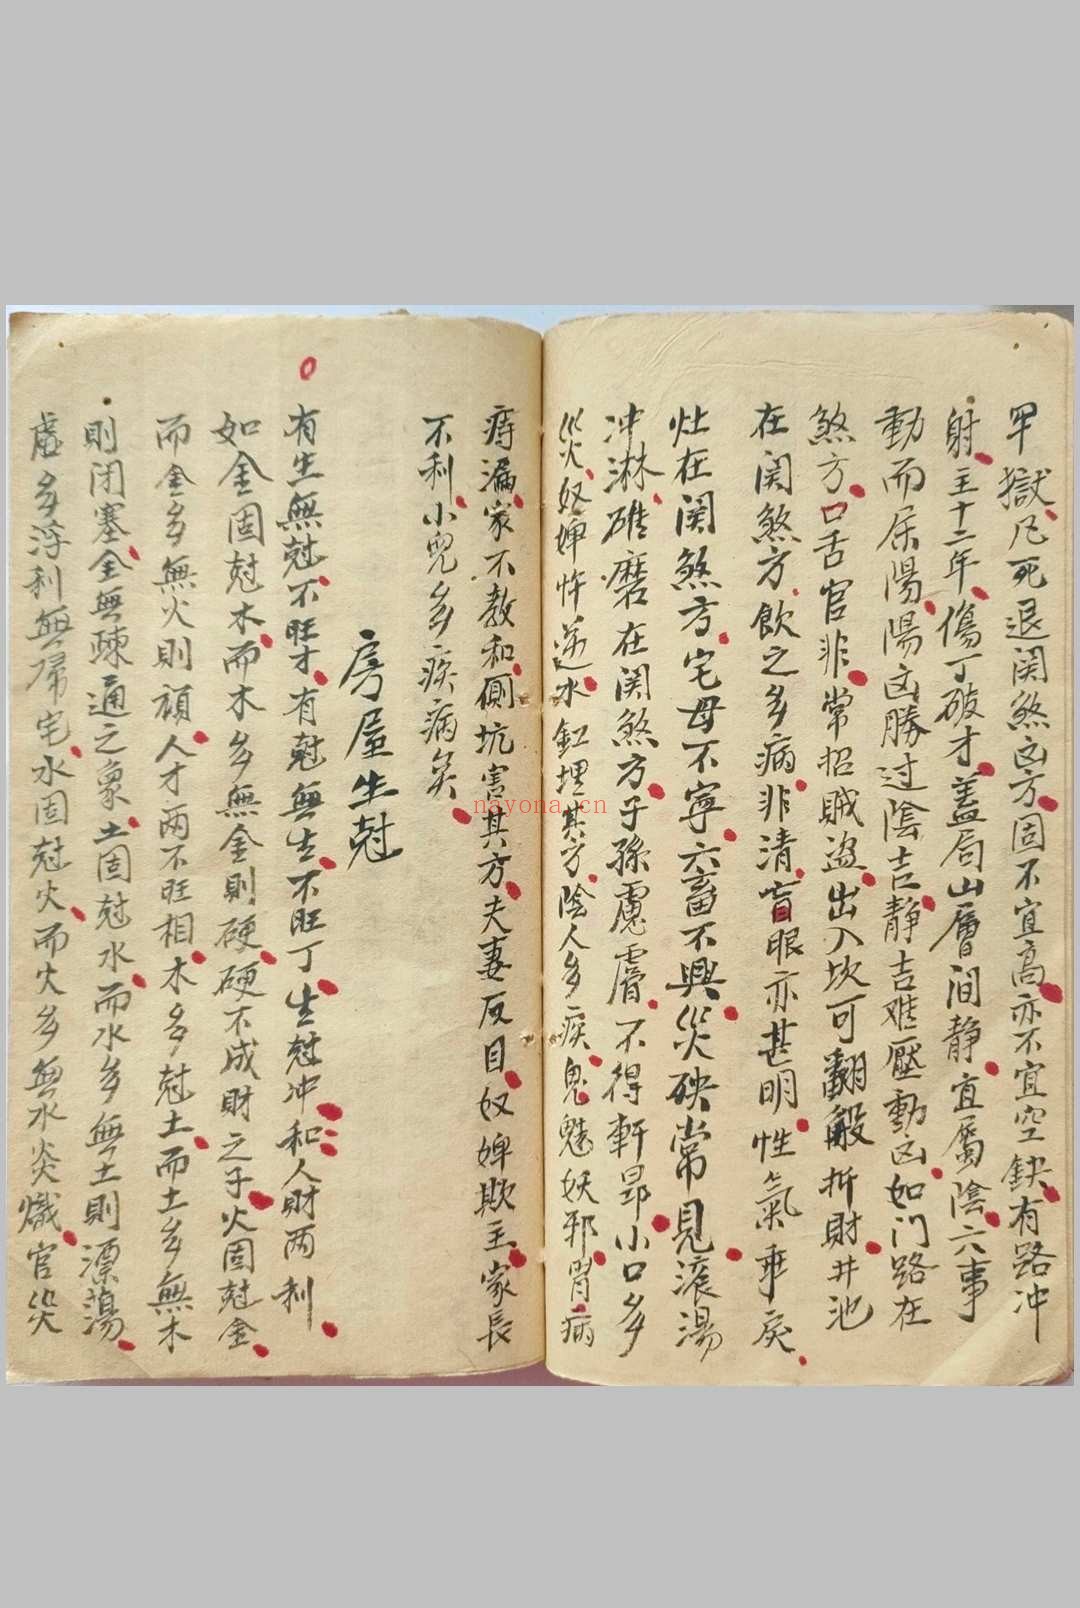 罕獄凡死退関煞凶方固不宜高亦不宜空缺有路冲
射主十二年傷丁破才蓋局山層间静宜屬陰六事
動而屈陽陽凶勝过陰吉静吉难壓動凶如门路在
煞方口舌官非常招賊盗出入坎可翻般折財井池
在関煞方飲之多病非清盲眼亦甚明性氣乖戾
灶在関煞方宅母不寧六畜不興災殃常見滾湯
冲淋碓磨在関煞方子孫慮膚不得軒昂小口多
災奴婢忤逆水缸埋其方陰人多疾鬼魅妖邪胃病
痔漏家不教和側坑害其方夫妻反目奴婢欺主家長
不利小兒多疾病矣
房屋生尅
有生無尅不旺才有尅無生不旺丁生尅冲和人財两利
如金固尅木而木多無金則硬硬不成財之子火固尅金
而金多無火則頑人才两不旺相木多尅土而土多無木
則闭塞全無疎通之象土固尅水而水多無土則漂蕩
虚多浮利無归宅水固尅火而火多無水炎熾官災
nayona.cn